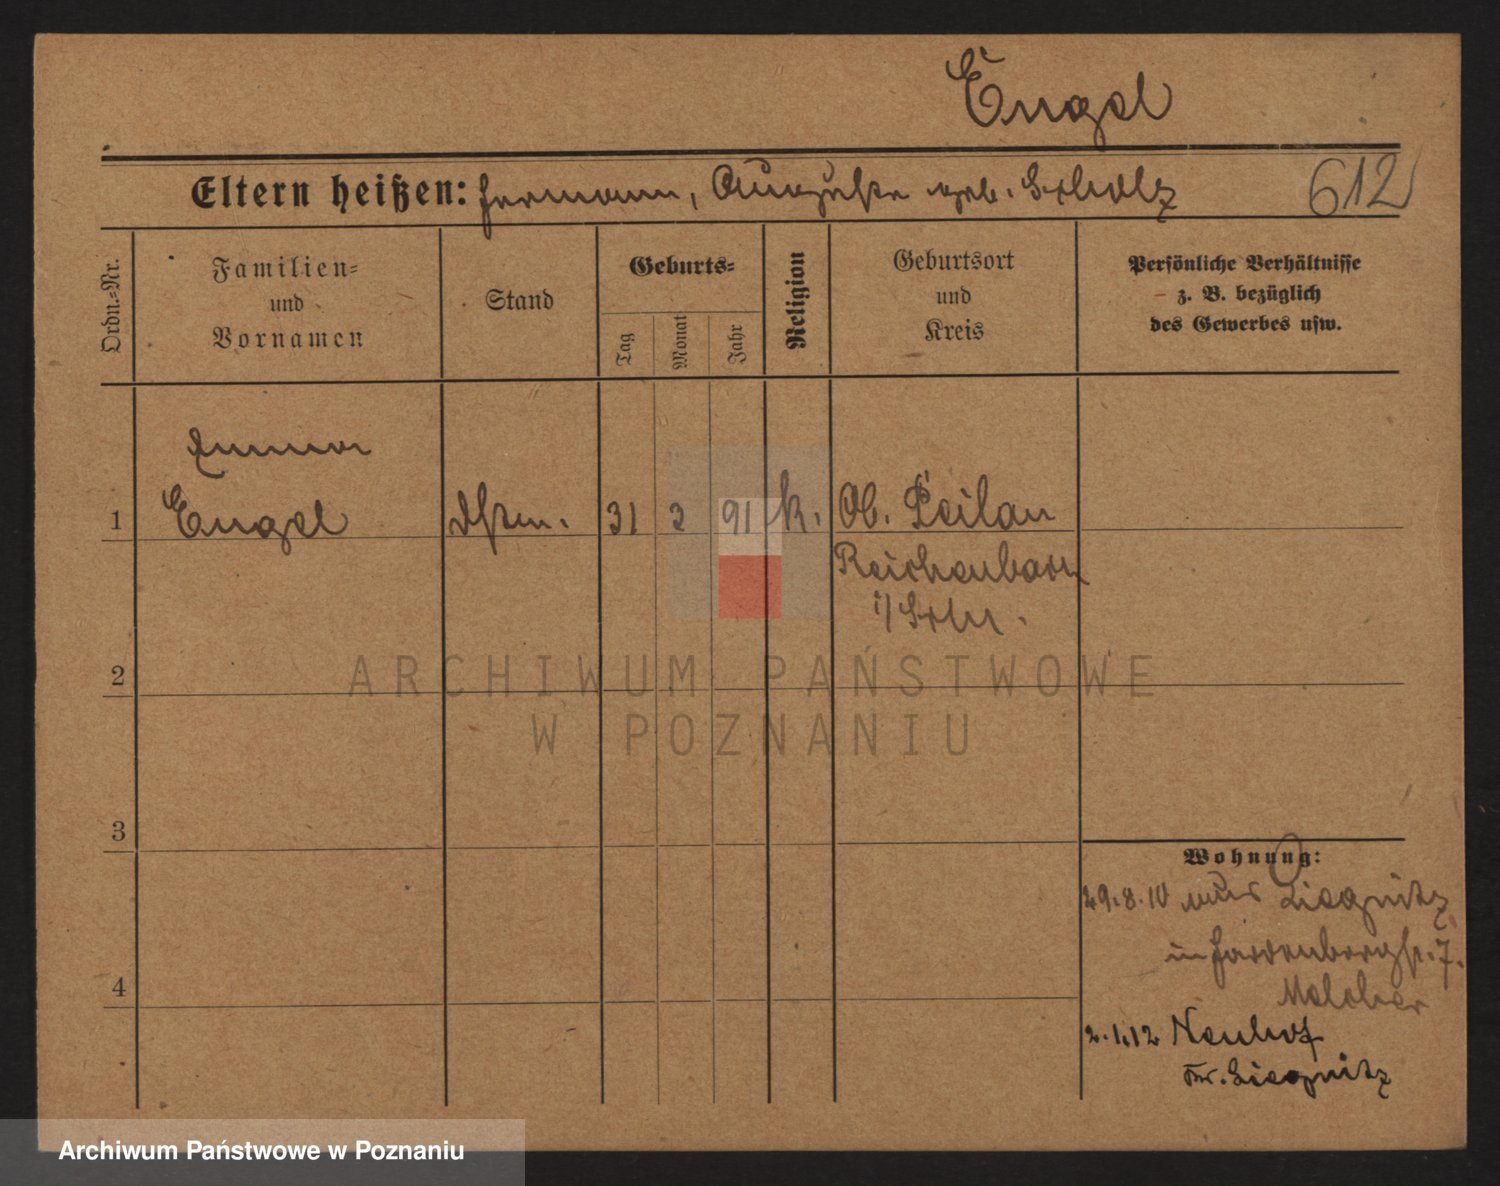 Engel
Eltern heißen: Hermann, Auguste geb. Scholz
612
Ordn.-Nr.
Familien-
und
Vornamen
Stand
Geburts-
Tag
Monat
Jahr
Religion
Geburtsort
und
Kreis
Persönliche Verhältnisse
z. B. bezüglich
des Gewerbes usw.
Emma
1 Engel 31 3 91 k. Ob. Peilau
Reichenbach
i/Schl.
2
3
4
Wohnung:
29.8.10 aus Liegnitz
in Hardenbergstr. 7.
Melcher
2.1.12 Neuhof
Kr. Liegnitz
ARCHIWUM PAŃSTWOWE
W POZNANIU
Archiwum Państwowe w Poznaniu